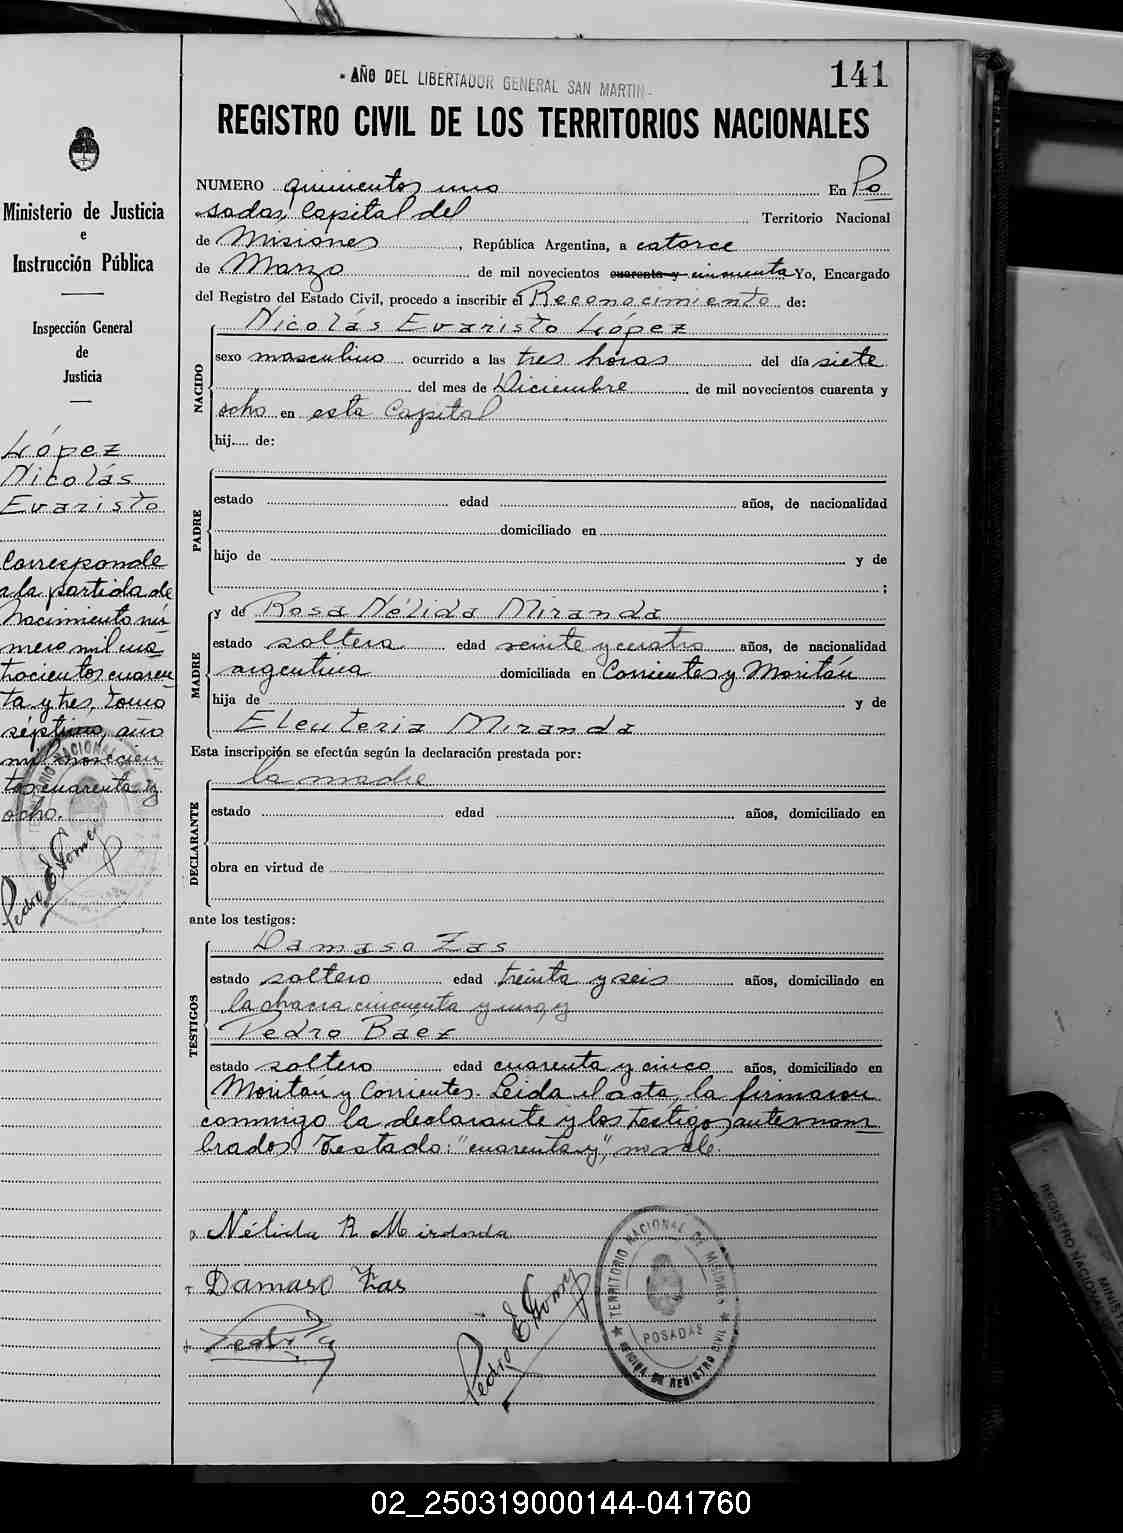 - AÑO DEL LIBERTADOR GENERAL SAN MARTIN -
141
REGISTRO CIVIL DE LOS TERRITORIOS NACIONALES
Ministerio de Justicia
e
Instrucción Pública
Inspección General
de
Justicia
López
Nicolás
Evaristo
Corresponde
a la partida de
Nacimiento nú
mero mil cua
trocientos cuaren
ta y tres, tomo
séptimo, año
mil novecien
tos cuarenta y
ocho.
Pedro E Gomez
NUMERO quinientos uno En Po
sadas, Capital del Territorio Nacional
de Misiones, República Argentina, a catorce
de Marzo de mil novecientos cuarenta y cincuenta Yo, Encargado
del Registro del Estado Civil, procedo a inscribir el Reconocimiento de:
NACIDO
Nicolás Evaristo López
sexo masculino ocurrido a las tres horas del día siete
del mes de Diciembre de mil novecientos cuarenta y
ocho en esta Capital
hij..... de:
PADRE
estado edad años, de nacionalidad
domiciliado en
hijo de y de
;
MADRE
y de Rosa Nélida Miranda
estado soltera edad veinte y cuatro años, de nacionalidad
argentina domiciliada en Corrientes y Moritán
hija de y de
Eleuteria Miranda
Esta inscripción se efectúa según la declaración prestada por:
DECLARANTE
la madre
estado edad años, domiciliado en
obra en virtud de
ante los testigos:
TESTIGOS
Damaso Zas
estado soltero edad treinta y seis años, domiciliado en
la chacra cincuenta y uno, y
Pedro Baez
estado soltero edad cuarenta y cinco años, domiciliado en
Moritán y Corrientes. Leida el acta, la firmaron
conmigo la declarante y los testigos antes nom
brados. Testado: "cuarenta y", no vale.
Nélida R Miranda
Damaso Zas
Pedro E Gomez
TERRITORIO NACIONAL DE MISIONES
POSADAS
OFICINA DE REGISTRO CIVIL
REGISTRO NACIONAL
MINISTE
02_250319000144-041760